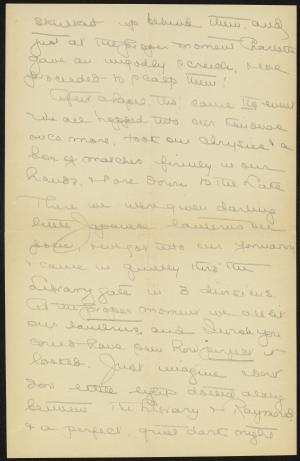 skulked up behind them, and
just at the proper moment
gave an ungodly screech, & we
proceeded to scalp them!
After chapel, tho', came the event
We all hopped into our kimonas
once more, took our &
box of matches firmly in our
hands, & tore down to the Lake
There we were given darling
little Japanese lanterns on
poles, & we got into our formation
& came in quietly thro' the
Library gate in 3 divisions
At the proper moment we all lit
our lanterns, and I wish you
could have seen how it
looked. Just imagine about
300 little lights dotted along
between the Library & Raymond,
& a perfect, quiet dark night